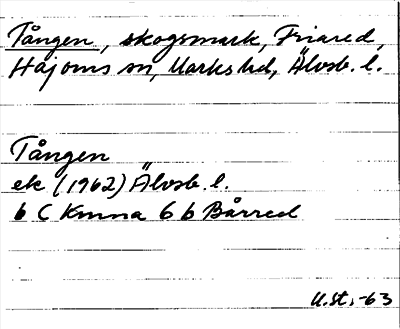 Tången, skogsmark, Friared,
Hajoms sn, Marks hd, Älvsb. l.
Tången
ek (1962) Älvsb. l.
6 C Kinna 6 b Bårred
U.st. -63